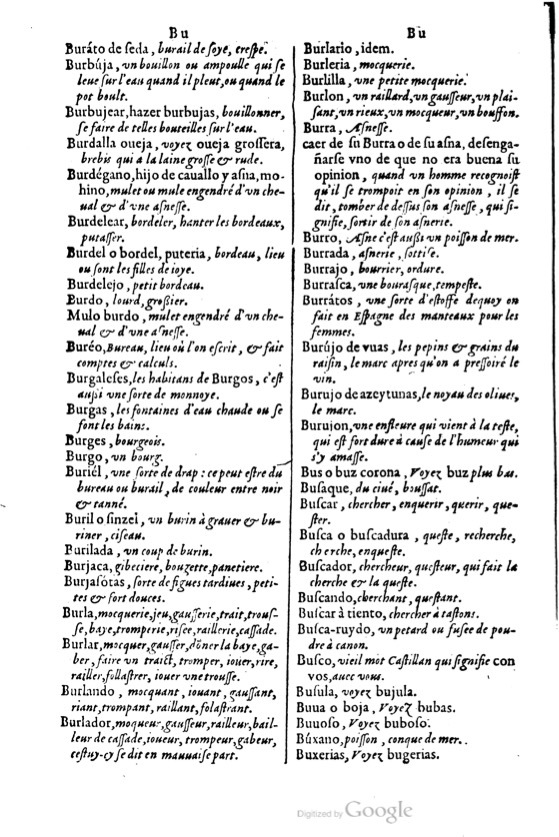 Bu
Buráto de seda, burail de soye, crespe.
Burbúja, vn bouillon ou ampoulle qui se
leue sur l'eau quand il pleut, ou quand le
pot boult.
Burbujear, hazer burbujas, bouillonner,
se faire de telles bouteilles sur l'eau.
Burdalla oueja, voyez oueja grossera,
brebis qui a la laine grosse & rude.
Burdégano, hijo de cauallo y asna, mo-
hino, mulet ou mule engendré d'vn che-
ual & d'vne asnesse.
Burdelear, bordeler, hanter les bordeaux,
putasser.
Burdel o bordel, puteria, bordeau, lieu
ou sont les filles de ioye.
Burdelejo, petit bordeau.
Burdo, lourd, grossier.
Mulo burdo, mulet engendré d'vn che-
ual & d'vne asnesse.
Buréo, Bureau, lieu où l'on escrit, & fait
comptes & calculs.
Burgaleses, les habitans de Burgos, c'est
aussi vne sorte de monnoye.
Burgas, les fontaines d'eau chaude ou se
font les bains.
Burges, bourgeois.
Burgo, vn bourg.
Buriél, vne sorte de drap: ce peut estre du
bureau ou burail, de couleur entre noir
& tanné.
Buril o sinzel, vn burin à grauer & bu-
riner, ciseau.
Purilada, vn coup de burin.
Burjaca, gibeciere, bougette, panetiere.
Burjasótas, sorte de figues tardiues, peti-
tes & fort douces.
Burla, mocquerie, jeu, gausserie, trait, trous-
se, baye, tromperie, risee, raillerie, cassade.
Burlar, mocquer, gausser, dōner la baye, ga-
ber, faire vn traict, tromper, iouer, rire,
railler, follastrer, iouer vne trousse.
Burlando, mocquant, iouant, gaussant,
riant, trompant, raillant, folastrant.
Burlador, moqueur, gausseur, railleur, bail-
leur de cassade, ioueur, trompeur, gabeur,
cestuy-cy se dit en mauuaise part.
Bu
Burlario, idem.
Burleria, mocquerie.
Burlilla, vne petite mocquerie.
Burlon, vn raillard, vn gausseur, vn plai-
sant, vn rieux, vn mocqueur, vn bouffon.
Burra, Asnesse.
caer de su Burra o de su asna, desenga-
ñarse vno de que no era buena su
opinion, quand vn homme recognoist
qu'il se trompoit en son opinion, il se
dit, tomber de dessus son asnesse, qui si-
gnifie, sortir de son asnerie.
Burro, Asne c'est aussi vn poisson de mer.
Burrada, asnerie, sottise.
Burrajo, bourrier, ordure.
Burrasca, vne bourasque, tempeste.
Burrátos, vne sorte d'estoffe dequoy on
fait en Espagne des manteaux pour les
femmes.
Burújo de vuas, les pepins & grains du
raisin, le marc apres qu'on a pressoiré le
vin.
Burujo de azeytunas, le noyau des oliues,
le marc.
Burujon, vne enfleure qui vient à la teste,
qui est fort dure à cause de l'humeur qui
s'y amasse.
Bus o buz corona, Voyez buz plus bas.
Busaque, du ciué, boussat.
Buscar, chercher, enquerir, querir, que-
ster.
Busca o buscadura, queste, recherche,
cherche, enqueste.
Buscador, chercheur, questeur, qui fait la
cherche & la queste.
Buscando, cherchant, questant.
Buscar à tiento, chercher à tastons.
Busca-ruydo, vn petard ou fusee de pou-
dre à canon.
Busco, vieil mot Castillan qui signifie con
vos, auec vous.
Busula, voyez bujula.
Buua o boja, Voyez bubas.
Buuoso, Voyez buboso.
Búxano, poisson, conque de mer.
Buxerias, Voyez bugerias.
Digitized by Google